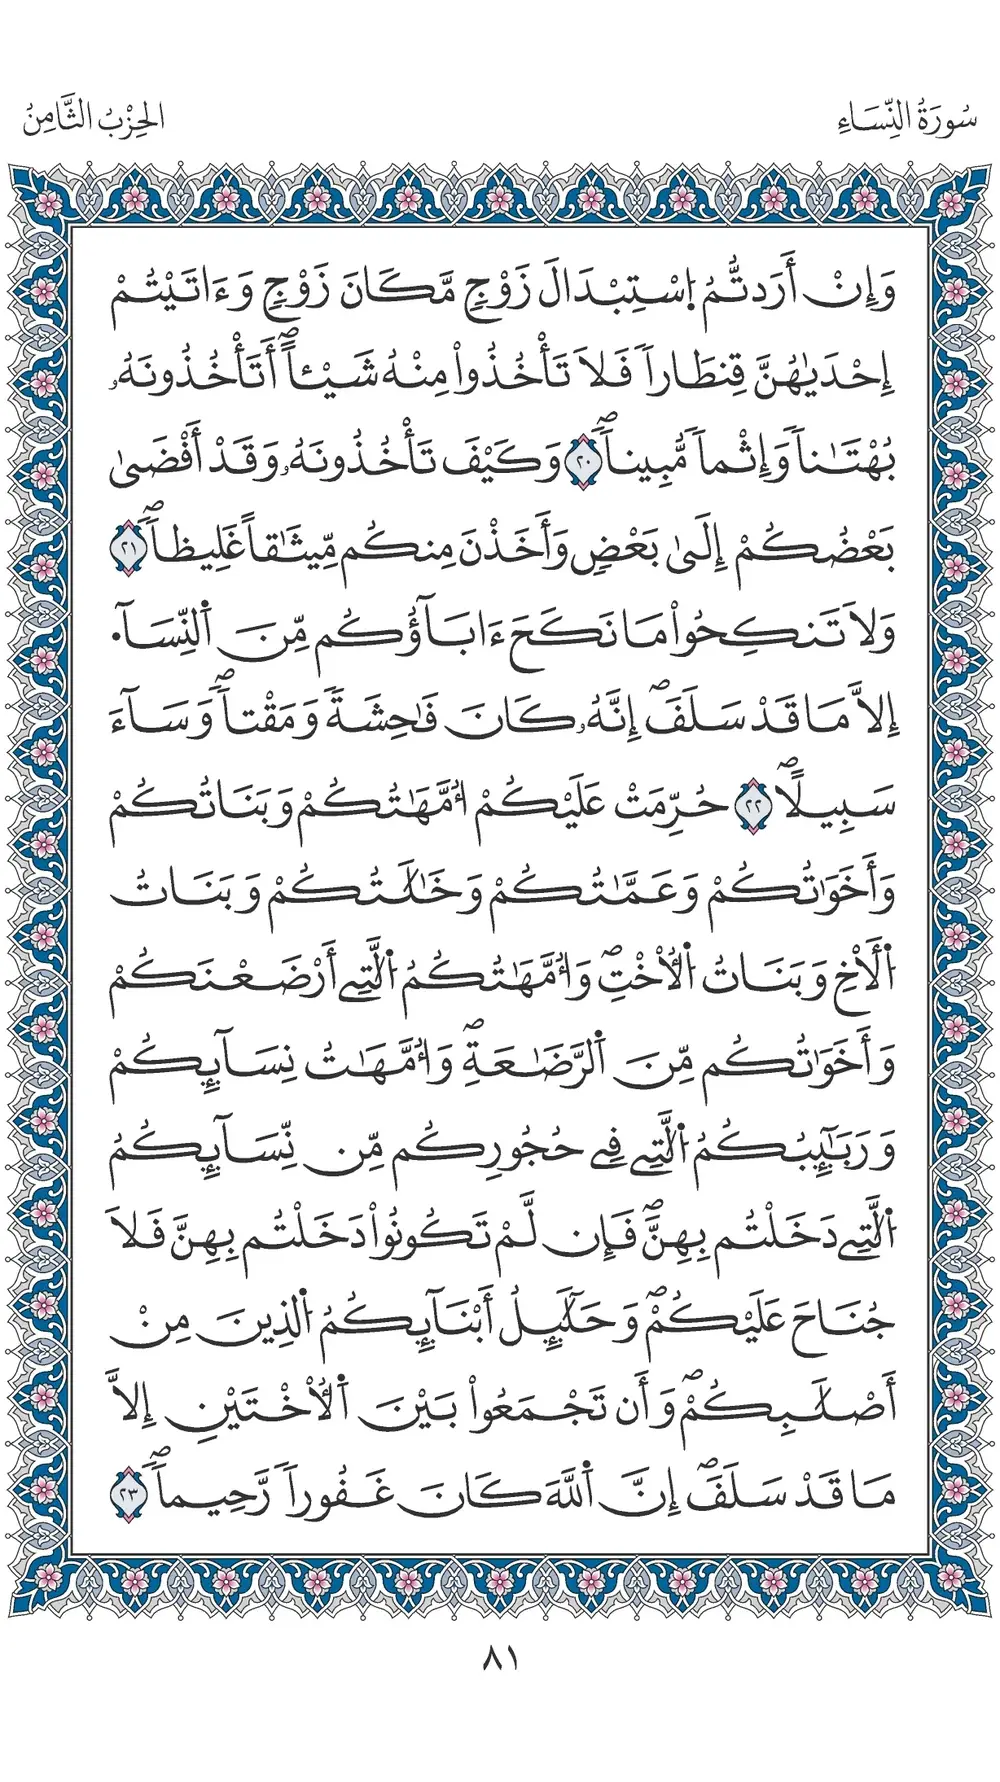 سُورَةُ النِّسَاءِ
الحِزْبُ الثَّامِنُ
وَإِنْ أَرَدتُّمُ اِسْتِبْدَالَ زَوْجٍ مَّكَانَ زَوْجٍ وَءَاتَيْتُمْ
إِحْدَيٰهُنَّ قِنطَاراٗ فَلَا تَأْخُذُواْ مِنْهُ شَيْـٔاًۖ أَتَأْخُذُونَهُۥ
بُهْتَٰناٗ وَإِثْماٗ مُّبِيناٗۖ ٢٠ وَكَيْفَ تَأْخُذُونَهُۥ وَقَدْ أَفْضَىٰ
بَعْضُكُمْ إِلَىٰ بَعْضٖ وَأَخَذْنَ مِنكُم مِّيثَٰقاً غَلِيظاٗۖ ٢١
وَلَا تَنكِحُواْ مَا نَكَحَ ءَابَآؤُكُم مِّنَ اَ۬لنِّسَآ•
إِلَّا مَا قَدْ سَلَفَۖ إِنَّهُۥ كَانَ فَٰحِشَةٗ وَمَقْتاٗۖ وَسَآءَ
سَبِيلًاۖ ٢٢ حُرِّمَتْ عَلَيْكُمْ أُمَّهَٰتُكُمْ وَبَنَاتُكُمْ
وَأَخَوَٰتُكُمْ وَعَمَّٰتُكُمْ وَخَٰلَٰتُكُمْ وَبَنَاتُ
اُ۬لْأَخِ وَبَنَاتُ اُ۬لْأُخْتِۖ وَأُمَّهَٰتُكُمُ اُ۬لَّٰتِےٓ أَرْضَعْنَكُمْ
وَأَخَوَٰتُكُم مِّنَ اَ۬لرَّضَٰعَةِۖ وَأُمَّهَٰتُ نِسَآئِكُمْ
وَرَبَٰٓئِبُكُمُ اُ۬لَّٰتِے فِے حُجُورِكُم مِّن نِّسَآئِكُمُ
اُ۬لَّٰتِے دَخَلْتُم بِهِنَّۖ فَإِن لَّمْ تَكُونُواْ دَخَلْتُم بِهِنَّ فَلَا
جُنَاحَ عَلَيْكُمْۖ وَحَلَٰٓئِلُ أَبْنَآئِكُمُ اُ۬لذِينَ مِنْ
أَصْلَٰبِكُمْۖ وَأَن تَجْمَعُواْ بَيْنَ اَ۬لْأُخْتَيْنِ إِلَّا
مَا قَدْ سَلَفَۖ إِنَّ اَ۬للَّهَ كَانَ غَفُوراٗ رَّحِيماٗۖ ٢٣
٨١